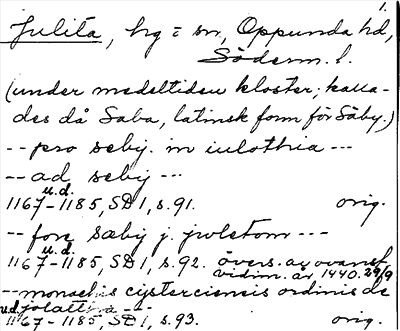 1.
Julita, hg = sn, Oppunda hd,
Söderm. l.
(under medeltiden kloster; kalla-
des då Saba, latinsk form för Säby.)
-- pro seby. in iulothia ---
-- ad seby ---
u.d.
1167-1185, SD 1, s. 91. orig.
-- fore sæby j. juletom ---
u.d.
1167-1185, SD 1, s. 92. övers. av ovanst.
vidim. år 1440. 29/9
-- monachis cysterciensis ordinis de
julatta --
u.d. 1167-1185, SD 1, s. 93. orig.